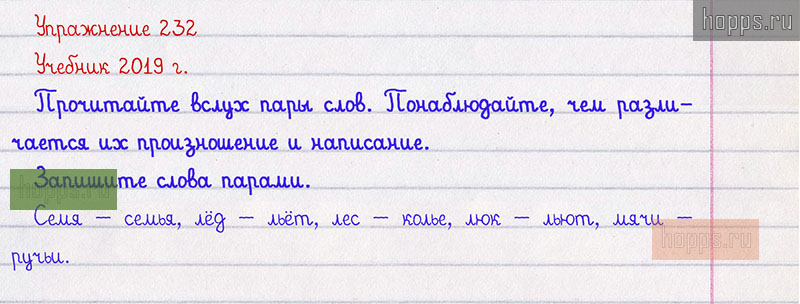 Упражнение 232
hopps.ru
Учебник 2019 г.
Прочитайте вслух пары слов. Понаблюдайте, чем разли-
чается их произношение и написание.
Запишите слова парами.
hopps.ru
Семя – семья, лёд – льёт, лес – колье, люк – льют, мячи –
hopps.ru
ручьи.